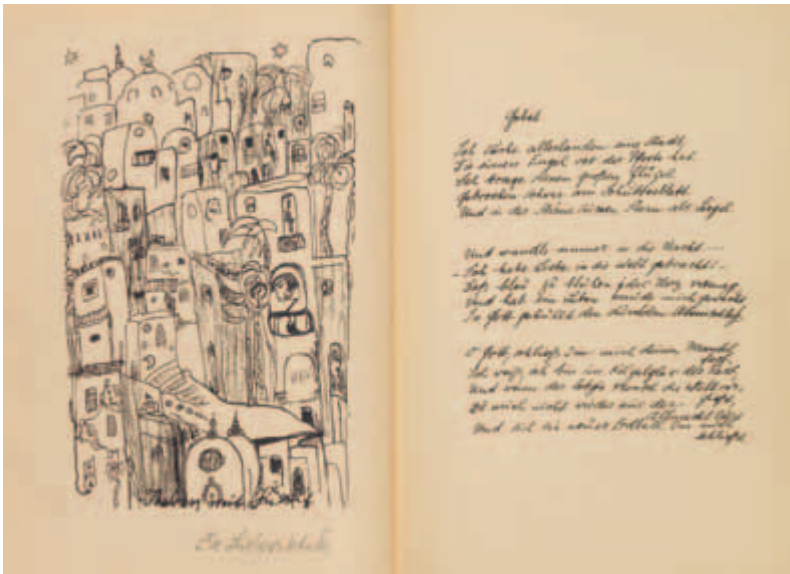 Theben mit Jussuf
Gebet
Ich suche allerlanden eine Stadt,
Die einen Engel vor der Pforte hat.
Ich trage seinen großen Flügel
Gebrochen schwer am Schulterblatt
Und in der Stirne seinen Stern als Siegel.
Und wandle immer in die Nacht ....
Ich habe Liebe in die Welt gebracht –
Daß blau zu blühen jedes Herz vermag,
Und hab ein Leben müde mich gewacht,
In Gott gehüllt den dunklen Atemschlag.
O Gott, schließ um mich deinen Mantel
fest;
Ich weiß, ich bin im Kugelglas der Rest,
Und wenn der letzte Mensch die Welt ver-
gießt,
Du mich nicht wieder aus der
Allmacht läßt
Und sich ein neuer Erdball um mich
schließt.